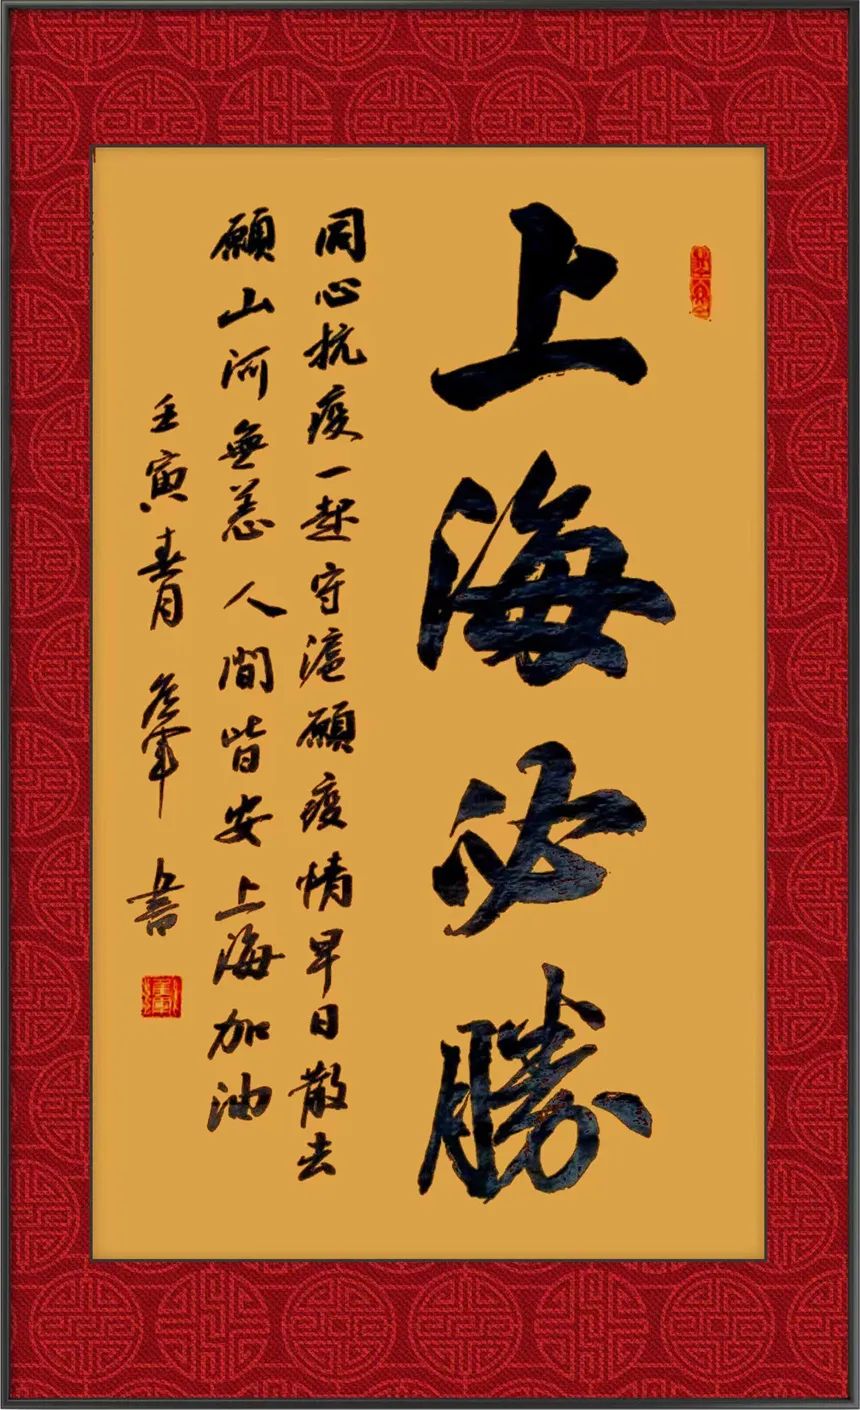 上海必勝
同心抗疫一起守滬願疫情早日散去
願山河無恙 人間皆安上海加油
壬寅春月 書